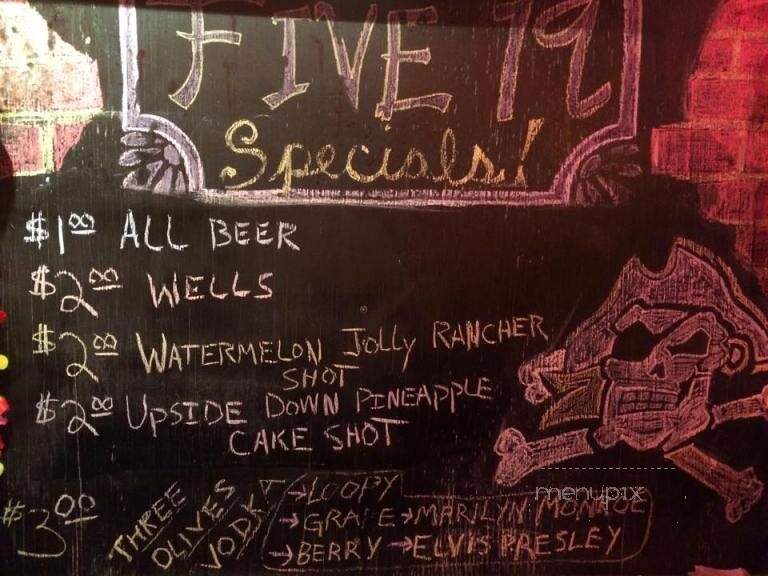 FIVE 19
Specials!
$1.00 ALL BEER
$2.00 WELLS
$2.00 WATERMELON JOLLY RANCHER
SHOT
$2.00 UPSIDE DOWN PINEAPPLE
CAKE SHOT
$3.00 THREE OLIVES VODKA
→LOOPY
→GRAPE →MARILYN MONROE
→BERRY →ELVIS PRESLEY
menupix